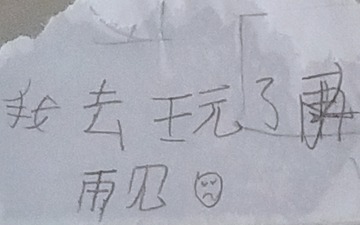 我去玩了
再见